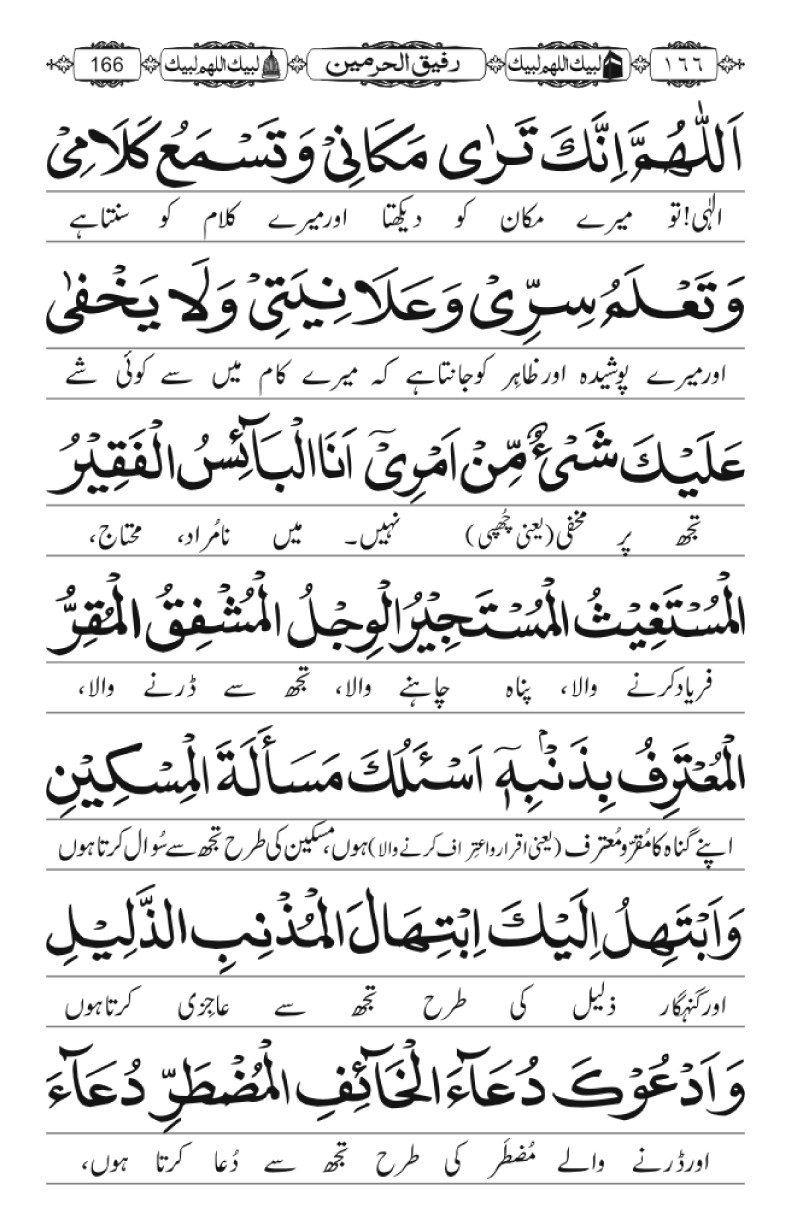 ١٦٦ لبیک اللھم لبیک رفیق الحرمین لبیک اللھم لبیک 166
اَللّٰهُمَّ اِنَّكَ تَرٰى مَكَانِیْ وَتَسْمَعُ كَلَامِیْ
الٰہی! تو میرے مکان کو دیکھتا اور میرے کلام کو سنتا ہے
وَتَعْلَمُ سِرِّیْ وَعَلَانِیَتِیْ وَلَا یَخْفٰی
اور میرے پوشیدہ اور ظاہِر کو جانتا ہے کہ میرے کام میں سے کوئی شے
عَلَیْكَ شَیْءٌ مِّنْ اَمْرِیْٓ اَنَا الْبَآئِسُ الْفَقِیْرُ
تجھ پر مخفی (یعنی چُھپی) نہیں۔ میں نامُراد، محتاج،
الْمُسْتَغِیْثُ الْمُسْتَجِیْرُ الْوِجْلُ الْمُشْفِقُ الْمُقِرُّ
فریاد کرنے والا، پناہ چاہنے والا، تجھ سے ڈرنے والا،
الْمُعْتَرِفُ بِذَنْۢبِهٖٓ اَسْئَلُكَ مَسْأَلَةَ الْمِسْكِیْنِ
اپنے گناہ کا مُقِرّ و مُعتَرِف (یعنی اقرار و اعتِراف کرنے والا) ہوں، مسکین کی طرح تجھ سے سُوال کرتا ہوں
وَاَبْتَهِلُ اِلَیْكَ اِبْتِهَالَ الْمُذْنِبِ الذَّلِیْلِ
اور گنہگار ذلیل کی طرح تجھ سے عاجِزی کرتا ہوں
وَاَدْعُوْكَ دُعَآءَ الْخَآئِفِ الْمُضْطَرِّ دُعَآءَ
اور ڈرنے والے مُضطَر کی طرح تجھ سے دُعا کرتا ہوں،